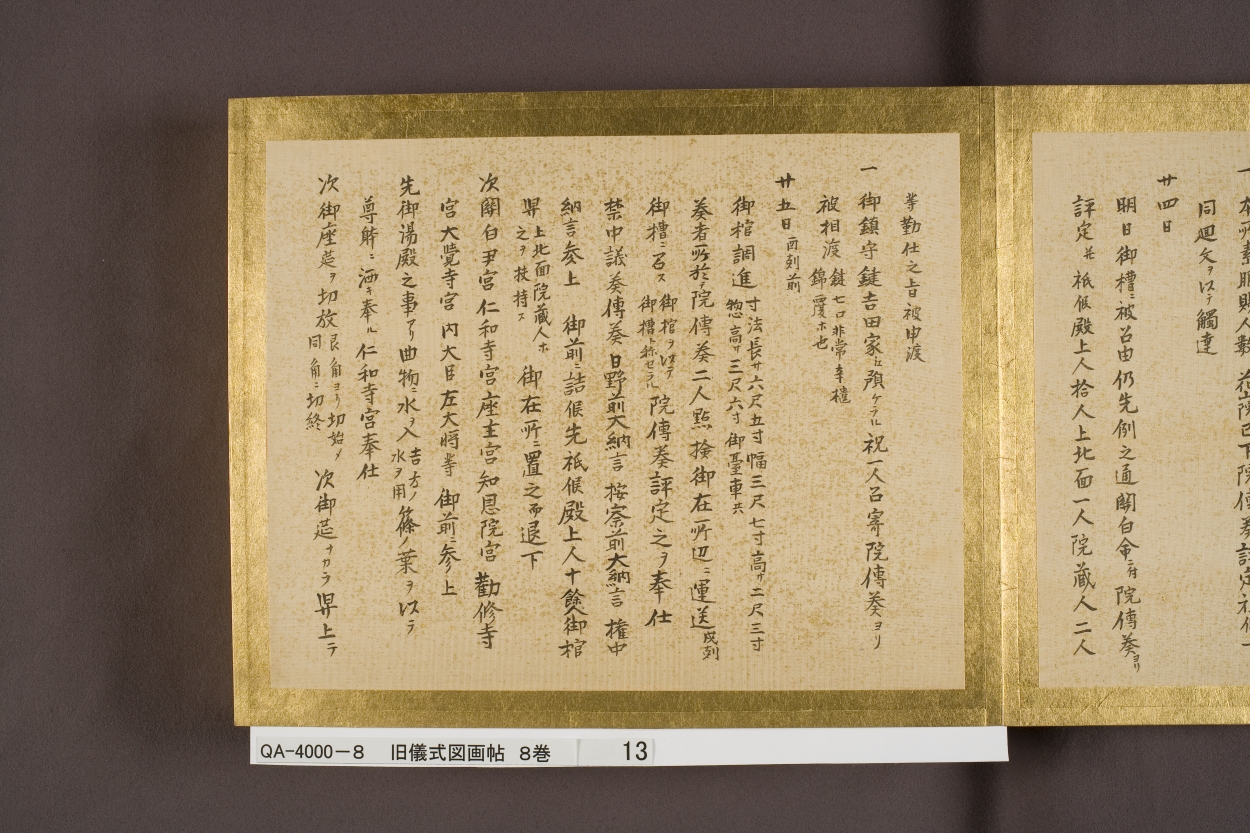 同廻文ヲ以テ觸達
廿四日
明日御槽ニ被召由仍先例之通關白命ニ付院傳奏ヨリ
評定並祗候殿上人拾人上北面一人院蔵人二人
等勤仕之旨被申渡
一 御鎮守鍵吉田家江預ケラル祝一人召寄院傳奏ヨリ
被相渡 鍵七口非常辛櫃
錦覆ホ也
廿五日 酉刻前
御棺調進 寸法長サ六尺五寸幅三尺七寸高サ二尺三寸
惣高サ三尺六寸御臺車共
奏者所於テ院傳奏二人點撿御在所辺ニ運送 戌刻
御槽ニ召ス 御棺ヲ以テ
御槽ト称セラル 院傳奏評定之ヲ奉仕
禁中議奏傳奏 日野前大納言 按察前大納言 權中
納言参上 御前ニ詰候先祇候殿上人十餘人御棺
舁 上北面院蔵人ホ
之ヲ扶持ス 御在所ニ置之而退下
次關白尹宮 仁和寺宮座主宮 知恩院宮 勸修寺
宮大覺寺宮 内大臣左大将等 御前ニ参上
先御湯殿之事アリ曲物ニ水ヲ入 吉方ノ
水ヲ用 篠ノ葉ヲ以テ
尊躰ニ洒キ奉ル 仁和寺宮奉仕
次御座莚ヲ切放 艮角ヨリ切始メ
同角ニ切終 次御莚ナカラ舁上テ
QA-4000-8 旧儀式図画帖 8巻 13